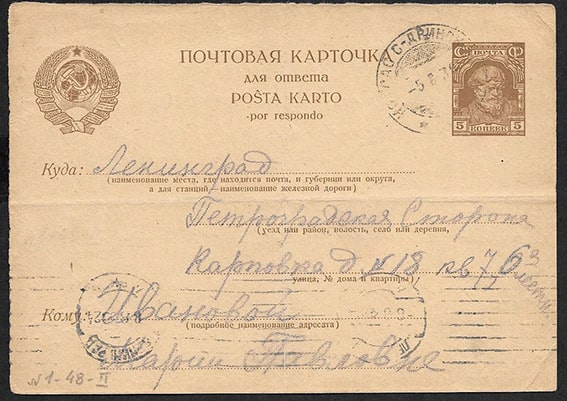 ПОЧТОВАЯ КАРТОЧКА
для ответа
POŜTA KARTO
·por respondo
ПОЧТА
5 КОПЕЕК 5
Куда: Ленинград
(наименование места, где находится почта, и губернии или округа,
а для станций наименование железной дороги)
Петроградская Сторона
(уезд или район, волость, село или деревня,
Карповка д N 18 кв 7,
улица, № дома и квартиры)
Кому: Ивановой
(подробное наименование адресата)
Марии Павловне
N1-48-II